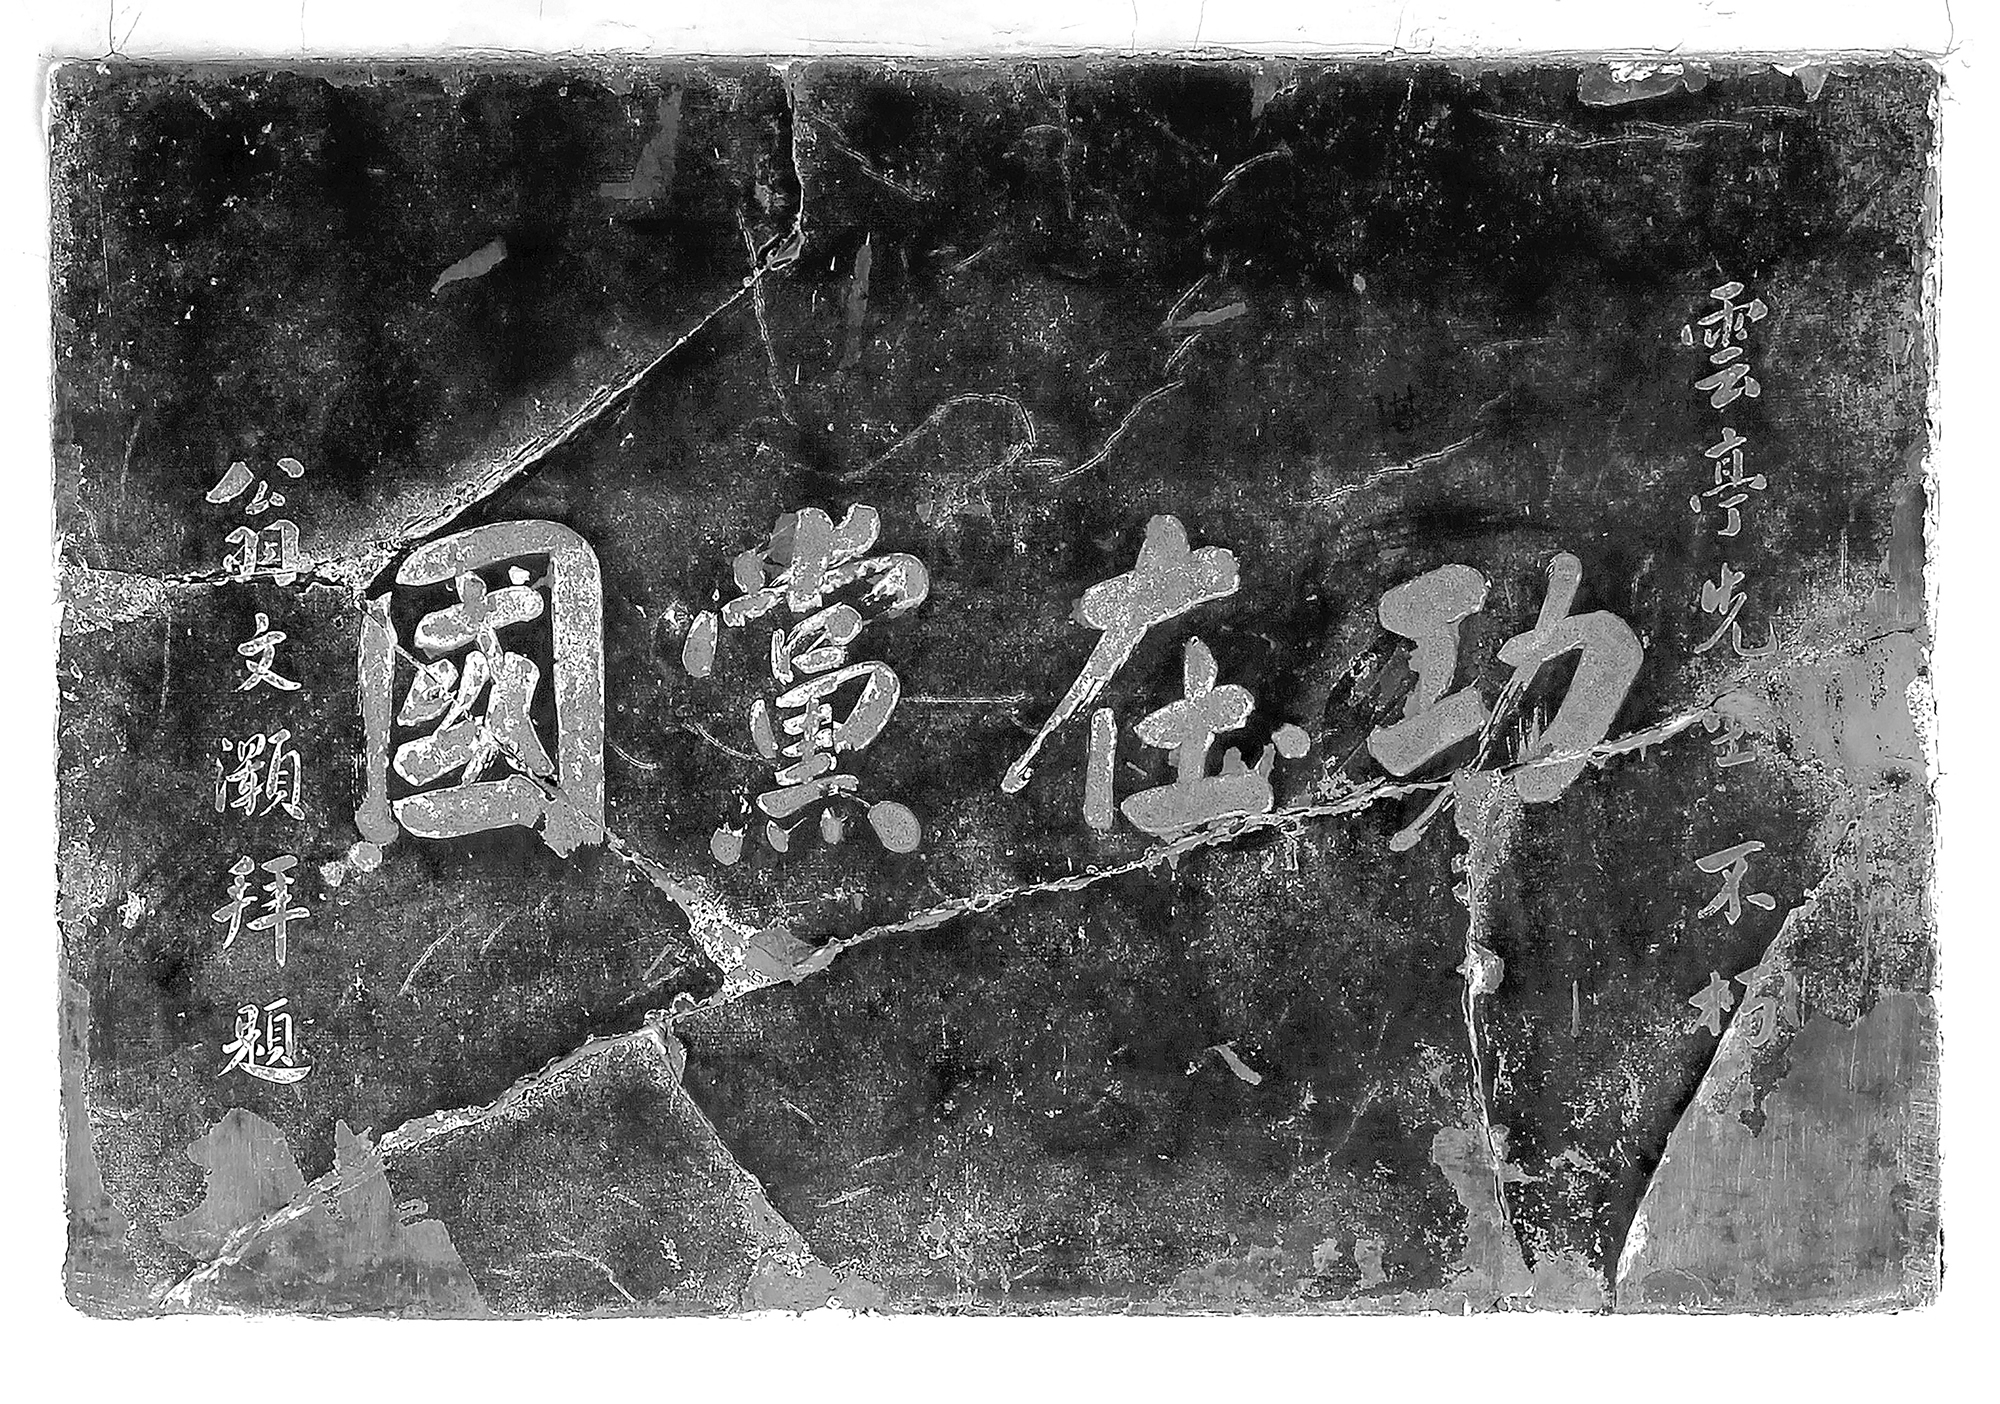 雲亭先生不朽
功在黨國
翁文灝拜題